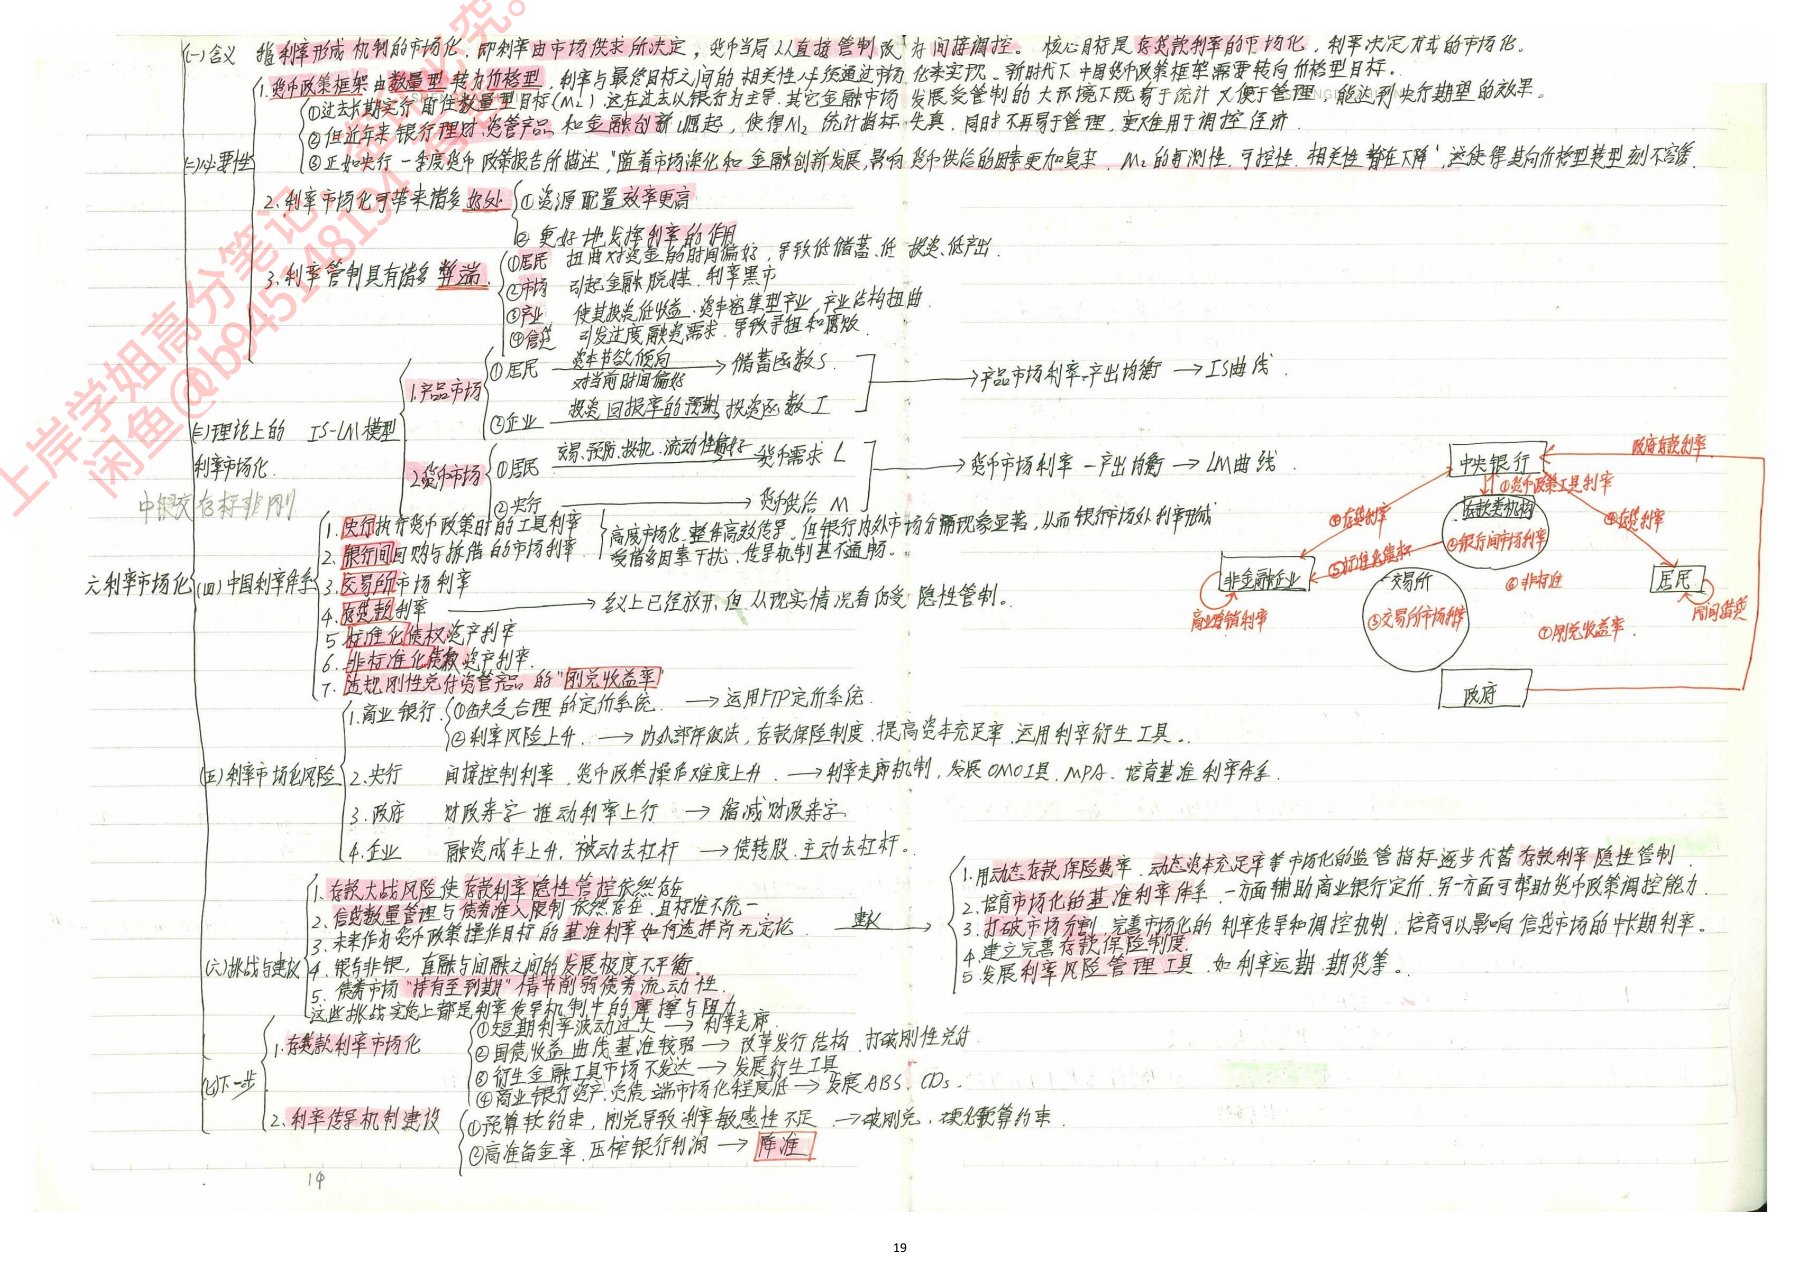 (一)含义 指利率形成机制的市场化,即利率由市场供求所决定,货币当局从直接管制改为间接调控。核心目标是存贷款利率的市场化,利率决定方式的市场化。
(二)必要性
1.货币政策框架由数量型转为价格型,利率与最终目标之间的相关性必须通过市场化来实现。新时代下中国货币政策框架需要转向价格型目标。
①过去长期实行盯住数量型目标(M2),这在过去以银行为主导,其它金融市场发展受管制的大环境下既易于统计又便于管理,能达到央行期望的效果。
②但近年来银行理财、资管产品和金融创新崛起,使得M2统计指标失真,同时不再易于管理,更难用于调控经济
③正如央行一季度货币政策报告所描述,"随着市场深化和金融创新发展,影响货币供给的因素更加复杂,M2的可测性、可控性、相关性都在下降",这使得其向价格型转型刻不容缓.
2.利率市场化可带来诸多好处
①资源配置效率更高
②更好地发挥利率的作用
3.利率管制具有诸多弊端
①居民 扭曲对资金的时间偏好,导致低储蓄、低投资、低产出.
②市场 引起金融脱媒、利率黑市
③产业 使其投资低收益、资本密集型产业,产业结构扭曲.
④信贷 引发过度融资需求,导致寻租和腐败.
(三)理论上的利率市场化. IS-LM模型
1.产品市场
①居民 资本节欲倾向 对当前时间偏好 → 储蓄函数S.
②企业 投资回报率的预测 投资函数I
→产品市场利率-产出均衡 → IS曲线.
2.货币市场
①居民 交易、预防、投机、流动性偏好 → 货币需求L
②央行 → 货币供给M
→货币市场利率-产出均衡 → LM曲线.
中银交存标非刚
六利率市场化
(四)中国利率体系
1.央行执行货币政策时的工具利率
2.银行间回购与拆借的市场利率
高度市场化,整体高效传导,但银行内外市场分割现象显著,从而银行市场外利率形成
受诸多因素干扰,传导机制甚不通畅。
3.交易所市场利率
4.存贷款利率 → 名义上已经放开,但从现实情况看仍受隐性管制。
5.标准化债权资产利率
6.非标准化债权资产利率.
7.违规刚性兑付资管产品的"刚兑收益率"
中央银行
政府存款利率
①货币政策工具利率
存款类机构
②银行间市场利率
④存贷利率
④存贷利率
⑤标准化债权
非金融企业
商业赊销利率
交易所
③交易所市场利率
⑥非标准
居民
民间借贷
⑦刚兑收益率.
政府
(五)利率市场化风险
1.商业银行
①缺乏合理的定价系统. → 运用FTP定价系统.
②利率风险上升. → 内外部评级法,存款保险制度,提高资本充足率,运用利率衍生工具。
2.央行 间接控制利率,货币政策操作难度上升. → 利率走廊机制,发展OMO工具、MPA、培育基准利率体系.
3.政府 财政赤字推动利率上行 → 缩减财政赤字.
4.企业 融资成本上升,被动去杠杆 → 债转股、主动去杠杆。
(六)挑战与建议
1.存款大战风险使存款利率隐性管控依然存在
2.信贷数量管理与债券准入限制依然存在,且标准不统一
3.未来作为货币政策操作目标的基准利率如何选择尚无定论
4.银与非银、直融与间融之间的发展极度不平衡。
5.债券市场"持有至到期"情节削弱债券流动性.
这些挑战实质上都是利率传导机制中的摩擦与阻力.
建议
1.用动态存款保险费率、动态资本充足率等市场化的监管指标逐步代替存款利率隐性管制.
2.培育市场化的基准利率体系,一方面辅助商业银行定价,另一方面可帮助货币政策调控能力.
3.打破市场分割,完善市场化的利率传导和调控机制,培育可以影响信贷市场的中长期利率。
4.建立完善存款保险制度.
5.发展利率风险管理工具,如利率远期、期货等。
(七)下一步
1.存贷款利率市场化
①短期利率波动过大 → 利率走廊.
②国债收益曲线基准较弱 → 改革发行结构,打破刚性兑付.
③衍生金融工具市场不发达 → 发展衍生工具
④商业银行资产、负债端市场化程度低 → 发展ABS、CDs.
2.利率传导机制建设
①预算软约束,刚兑导致利率敏感性不足 → 破刚兑,硬化预算约束.
②高准备金率,压榨银行利润 → 降准
14
19
上岸学姐高分笔记,
闲鱼@b945148194